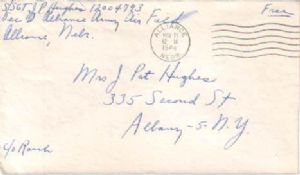 S/SGT J P Hughes 12004793
Sec D Alliance Army Air
Alliance, Nebr.
Free
ALLIANCE
NEBR.
Mrs J Pat Hughes
335 Second St
Albany-5-N.Y.
c/o Roark